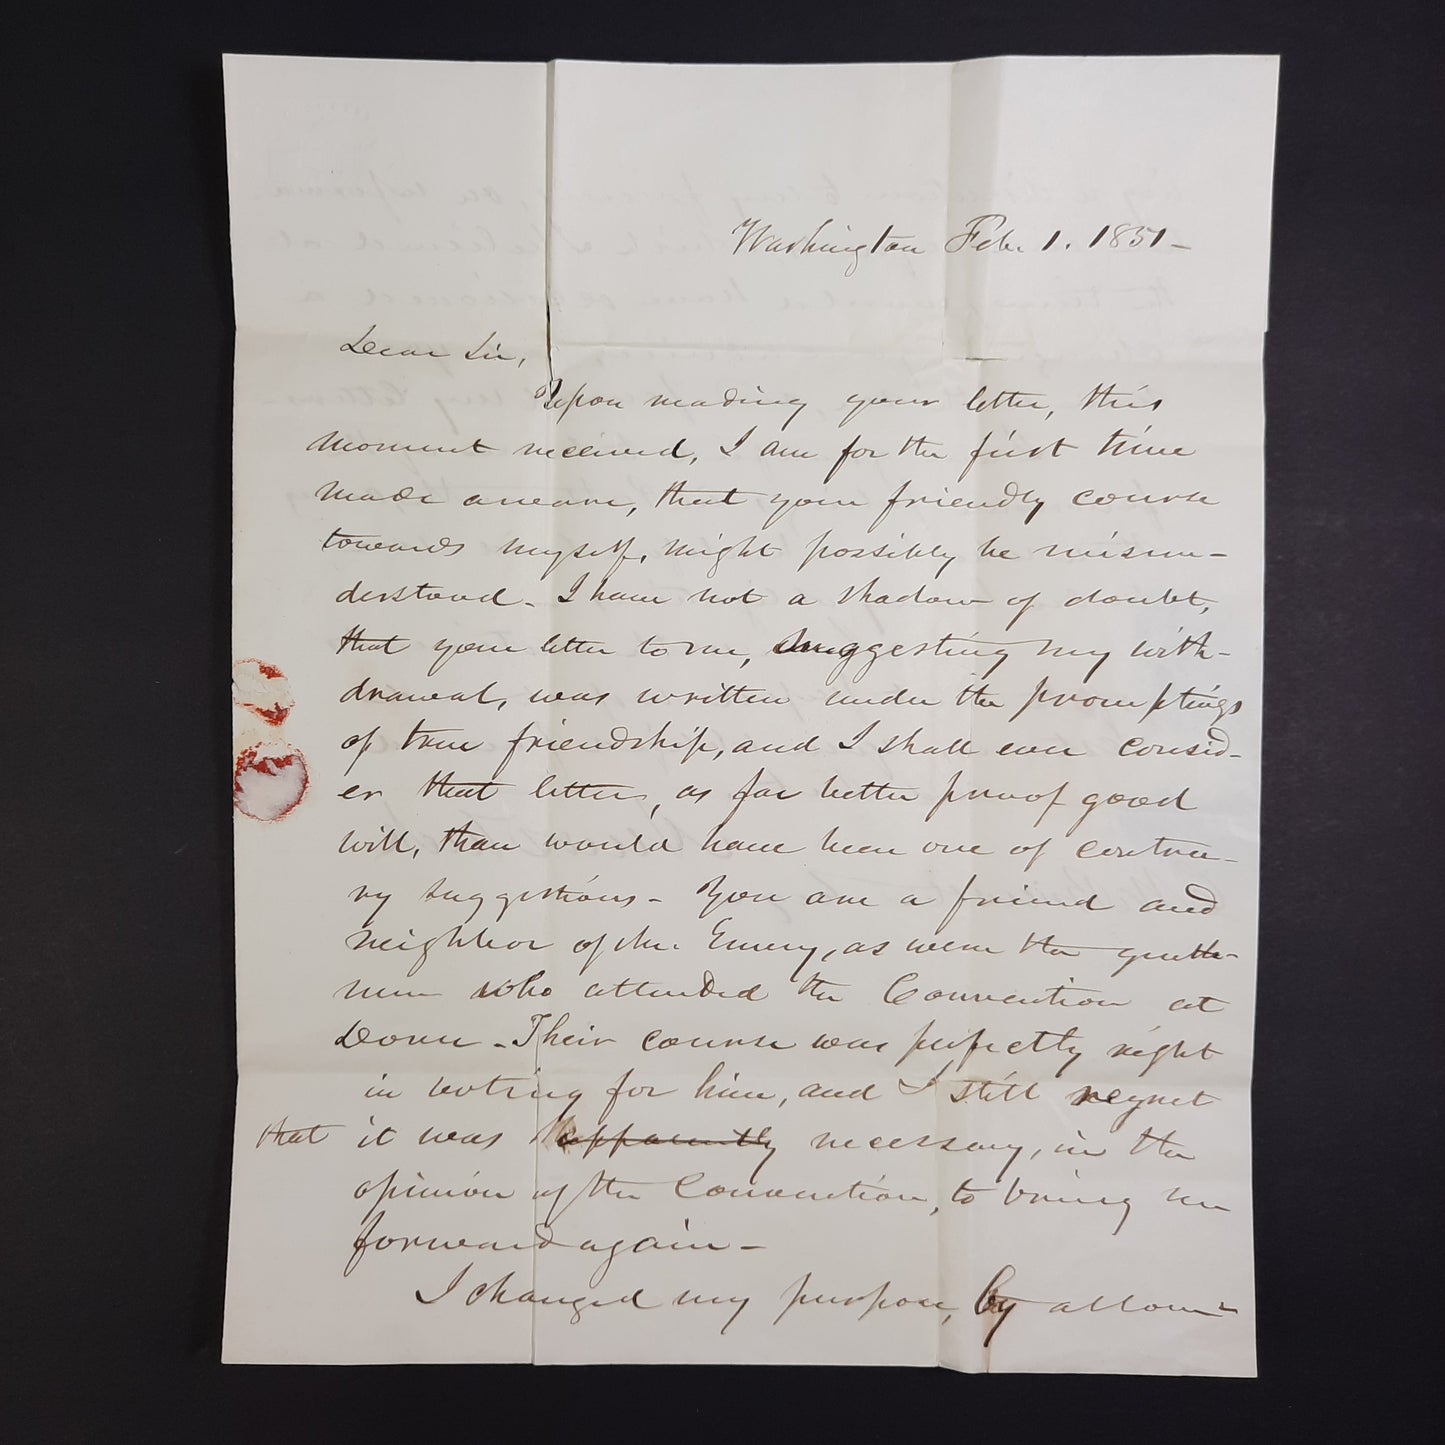 Washington Feb. 1. 1851-
Dear Sir,
Upon reading your letter, this
moment received, I am for the first time
made aware, that your friendly course
towards myself, might possibly be misun-
derstood - I have not a shadow of doubt,
that your letter to me, suggesting my with-
drawal, was written under the promptings
of true friendship, and I shall ever consid-
er that letter, as far better proof of good
will, than would have been one of contra-
ry suggestions - You are a friend and
neighbor of Mr. Emery, as were the gentle-
men who attended the Convention at
Dover - Their course was perfectly right
in voting for him, and I still regret
that it was apparently necessary, in the
opinion of the Convention, to bring me
forward again -
I changed my purpose, by allow-